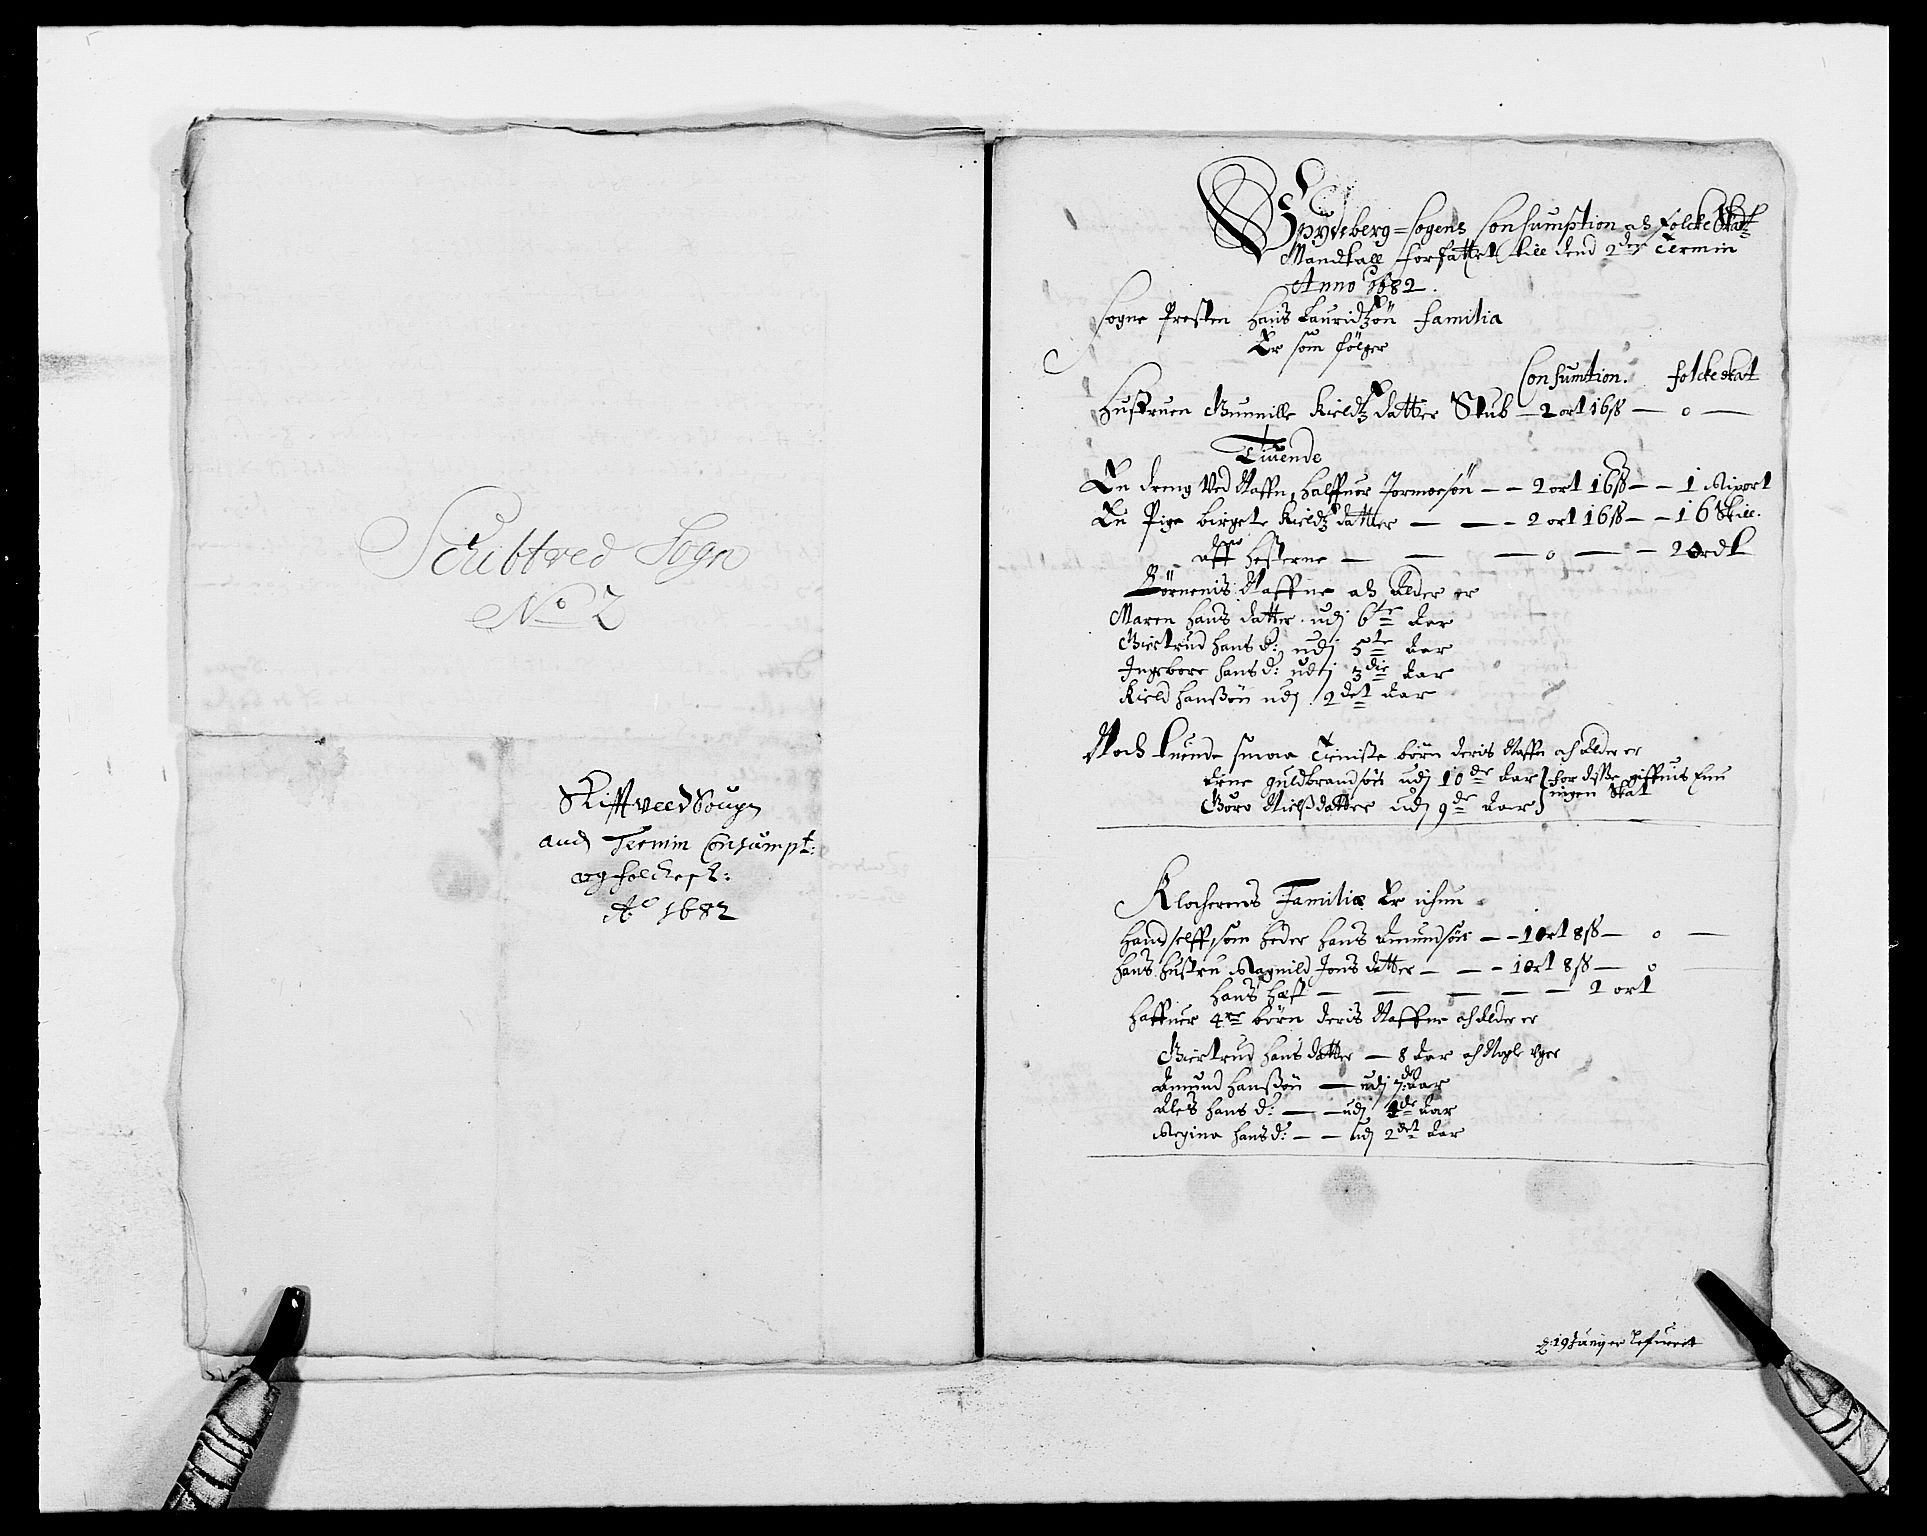 Schibtved Sogn
No 2
Skiftveed Sougn
and Termin Consumpt:
og folckesk:
Ao 1682
Spydeberg=Sogens Consumption och Folcke Skatt
Mandtall forfattet till dend 2den Termin
Anno 1682.
Sogne Presten Hans Lauridtzøn familia
Er som følger
Consumtion. folckeskat
Hustruen Gunnille Kieldtz datter Stub — 2 ort 16 ß — 0 —
Tiuende
En dreng ved Naffn, Halffuer Tormoesøn — — 2 ort 16 ß — — 1 Rixort
En Pige birgete Kieldtz datter — — — 2 ort 16 ß — — 16 Skill.
aff hesterne — — — 0 — — 2 ordt
Børnenis Naffne och Alder er
Maren Hans datter udj 6te Aar
Giertrud Hans d: udj 5te Aar
Ingebore Hans d: udj 3die Aar
Kield Hanssøn udj 2det Aar
Noch tuende smaa Tieniste børn deris Naffn och Alder er
Arne Guldbrandsøn udj 10de Aar } for disse giffuis Enu
Goro Nielsdatter udj 9de Aar } ingen Skat
Klockerens Familiæ Er ichun
Hand selff, som heder Hans Amundsøn — — 1 ort 8 ß — 0 —
Hans Hustru Magnild Jons datter — — — 1 ort 8 ß — 0
Hans Hest — — — — — 2 ort
Haffuer 4re børn deris Naffne och Alder er
Giertrud Hans datter — 8 Aar och Nogle Uger
Amund Hanssøn — udj 7de Aar
Ales Hans d: — — udj 4de Aar
Regina Hans d: — — udj 2det Aar